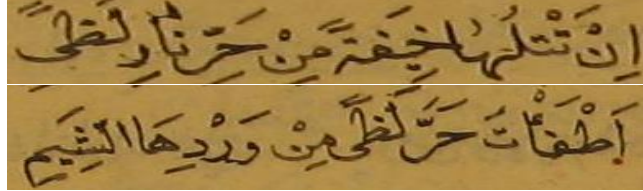 اِنْ تَتْلُهَا خِيْفَةً مِّنْ حَرِّ نَارِ لَظٰى
اَطْفَأْتَ حَرَّ لَظٰى مِنْ وَرْدِهَا الشَّبِمِ